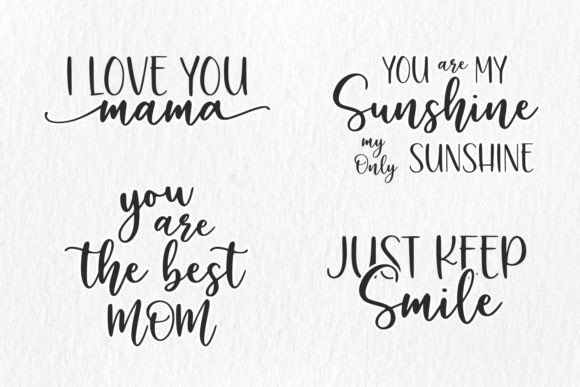 I LOVE YOU
mama
YOU are MY
Sunshine
my Only SUNSHINE
you
are
the best
MOM
JUST KEEP
Smile